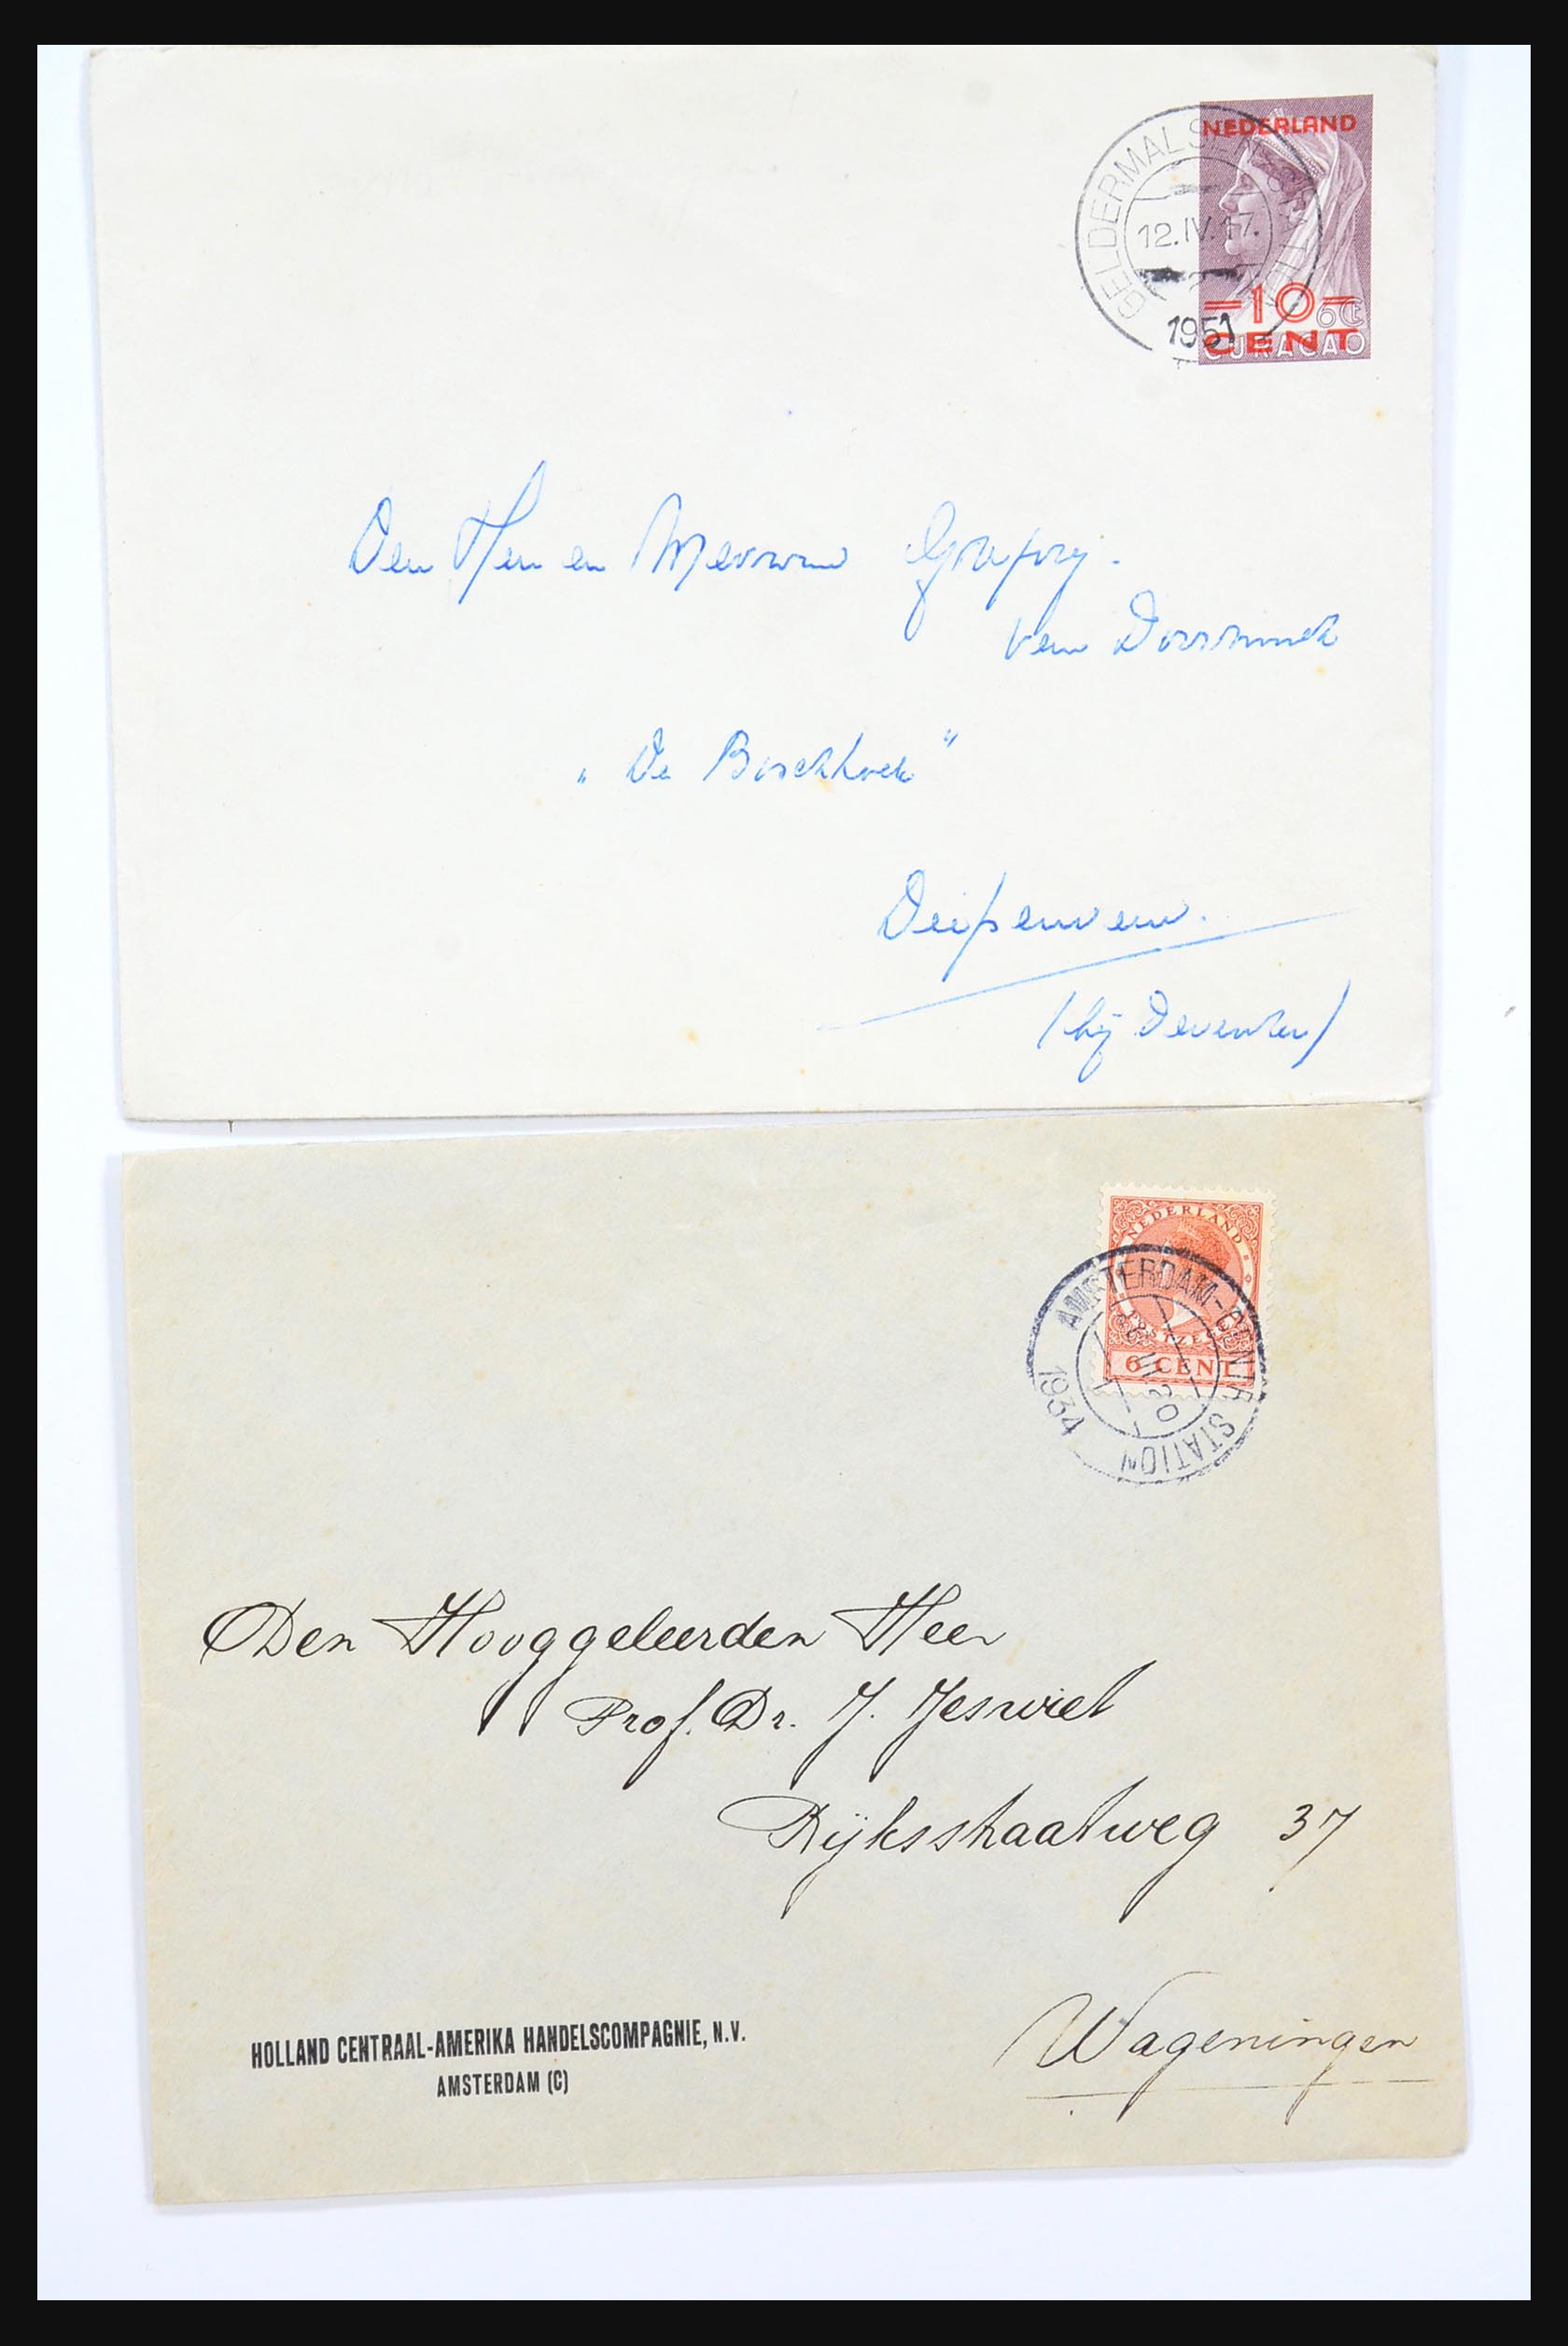 NEDERLAND
GELDERMALSEN
12.IV.17.
1951
=10=
6 Ct
CENT
CURAÇAO
Den Heer en Mevrouw
van
„De Boschhoek"
Diepenveen.
(bij Deventer)
NEDERLAND
POSTZEGEL
6 CENT
AMSTERDAM-CENTR. STATION
1934
Den Hooggeleerden Heer
Prof. Dr. J. Jeswiet
Rijksstraatweg 37
Wageningen
HOLLAND CENTRAAL-AMERIKA HANDELSCOMPAGNIE, N.V.
AMSTERDAM (C)